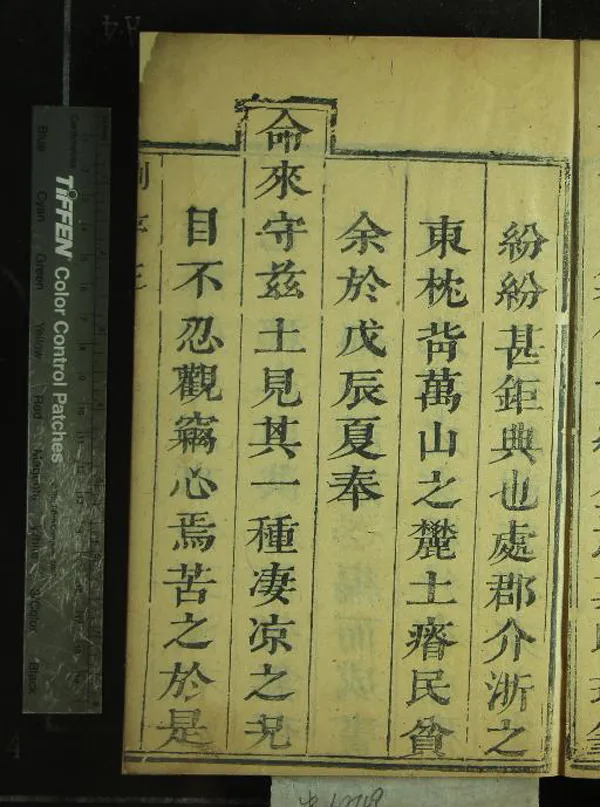 紛紛甚鉅典也處郡介浙之
東枕背萬山之麓土瘠民貧
余於戊辰夏奉
命來守兹土見其一種凄凉之况
目不忍觀竊心焉苦之於是
TIFFEN Color Control Patches
Blue Cyan Green Yellow Red Magenta White 3/Color Black